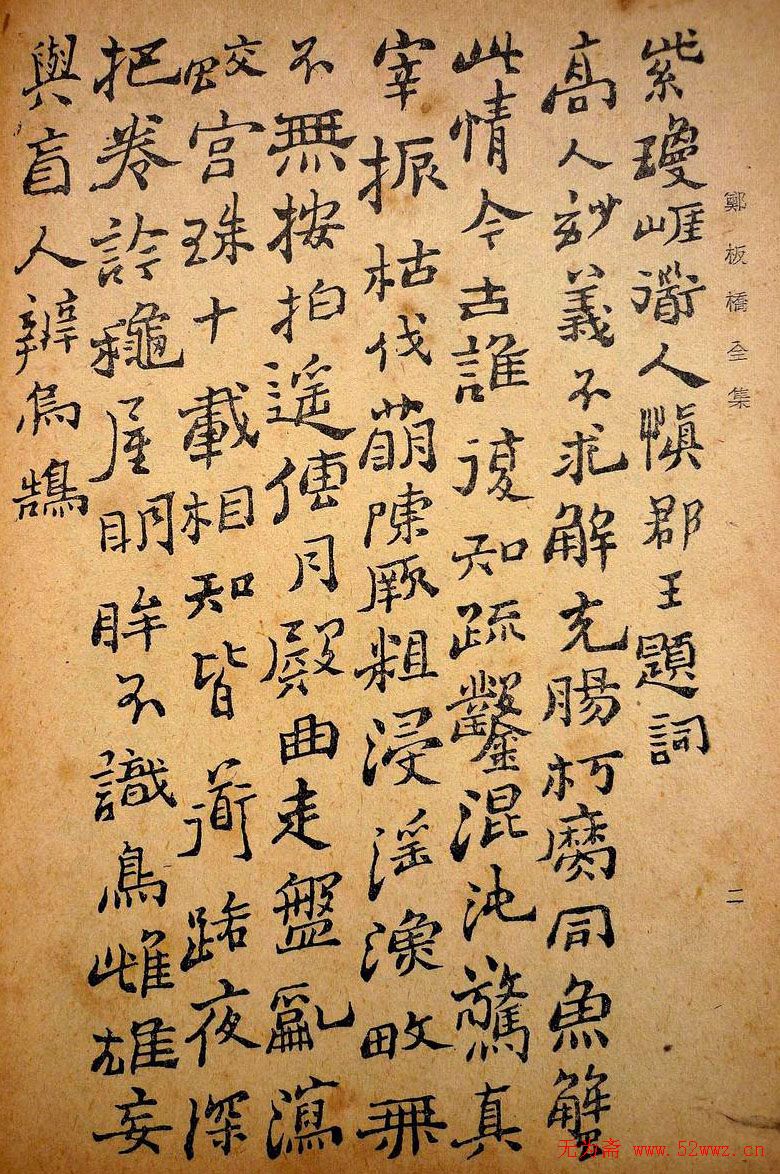 鄭板橋全集
二
紫瓊崕道人慎郡王題詞
高人玅義不求解充腸朽腐同魚蟹
此情今古誰復知疏鑿混沌驚真
宰振枯伐萌陳厥粗浸淫漁畋無
不無按拍遙傳月殿曲走盤亂瀉
蛟宮珠十載相知皆道路夜深
把卷訡龝屋明眸不識鳥雌雄妄
與盲人辨烏鵠
无为斋 www.52wwz.cn